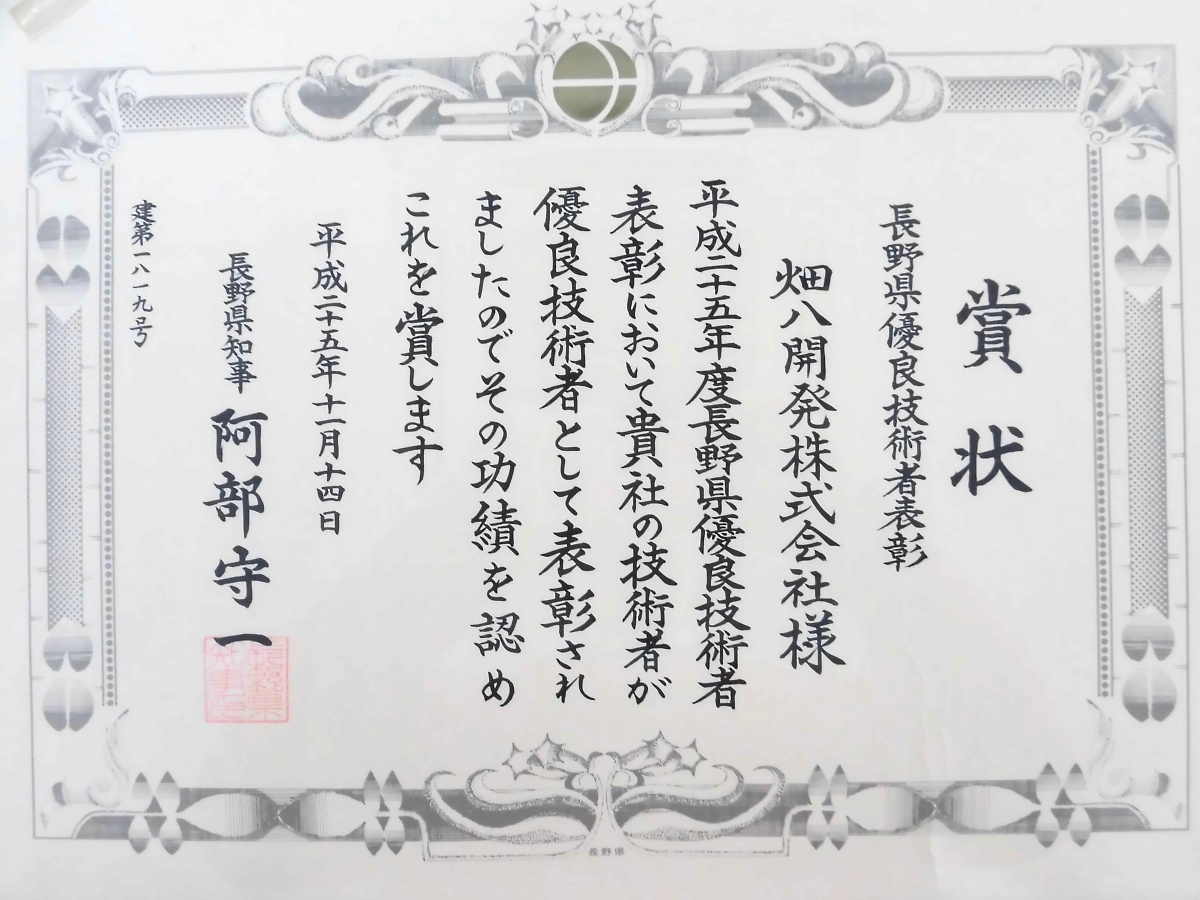 賞状
長野県優良技術者表彰
畑八開発株式会社様
平成二十五年度長野県優良技術者
表彰において貴社の技術者が
優良技術者として表彰され
ましたのでその功績を認め
これを賞します
平成二十五年十一月十四日
長野県知事 阿部守一
建第一八一九号
長野県